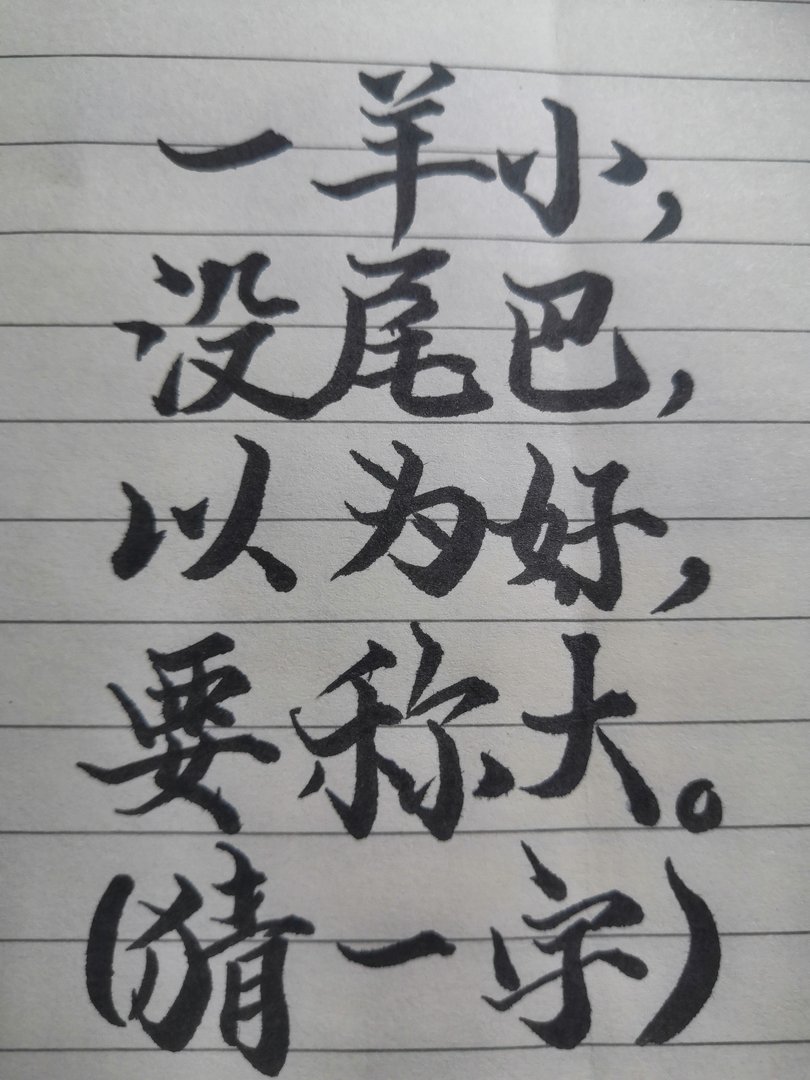 一羊小，
没尾巴，
以为好，
要称大。
（猜一字）